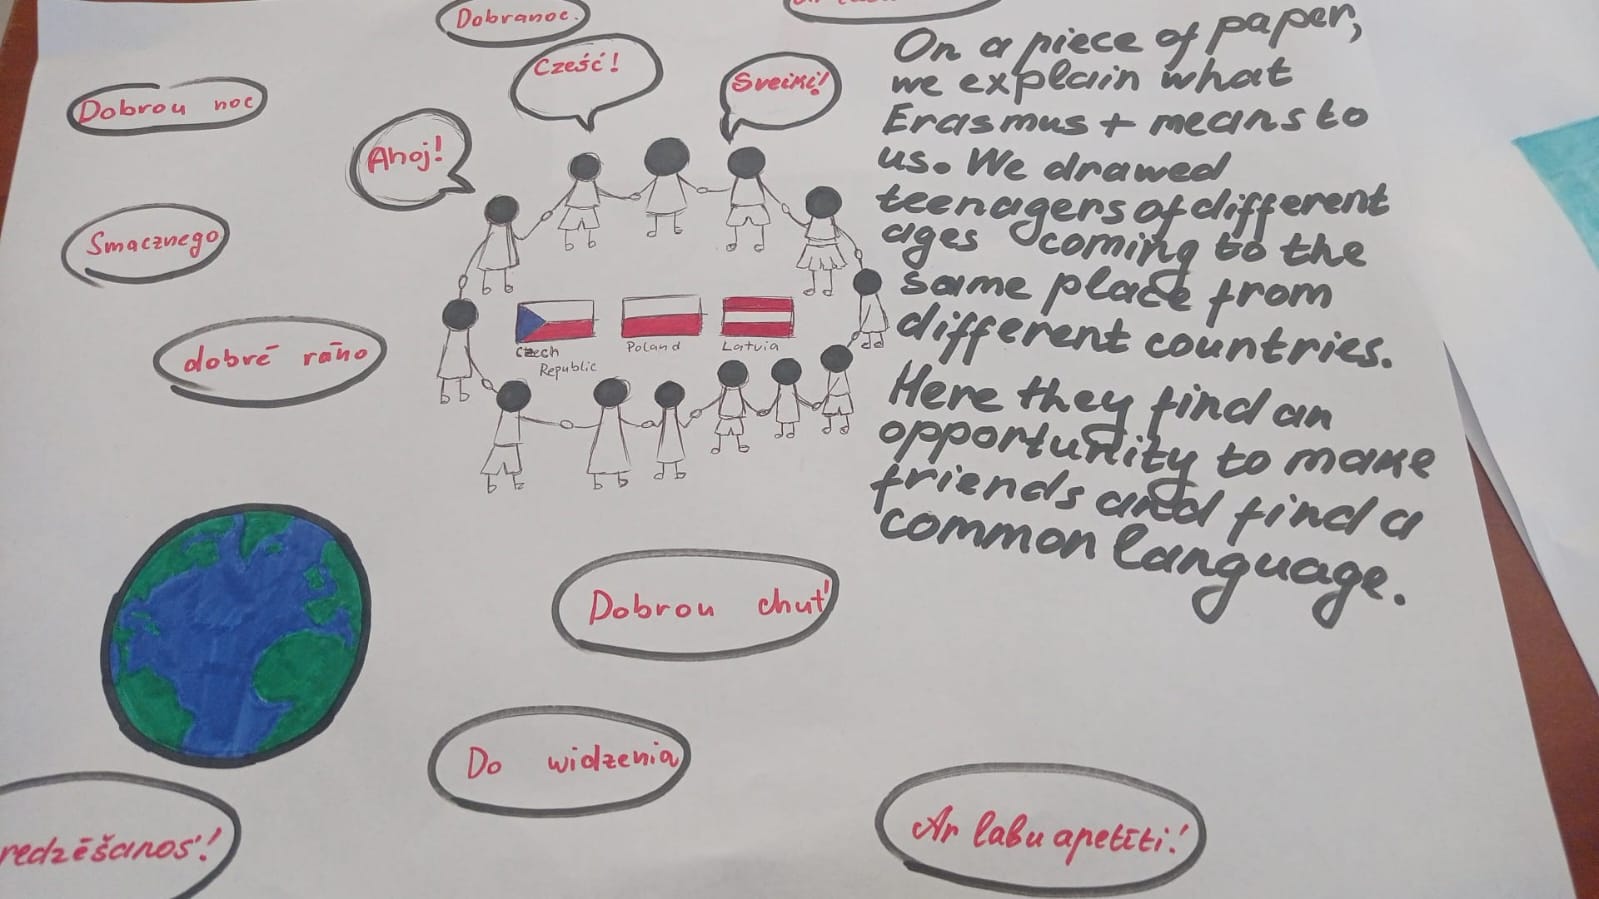 Dobranoc.
Cześć!
Sveiki!
Dobrou noc
Ahoj!
Smacznego
dobré ráno
Czech
Republic
Poland
Latvia
On a piece of paper,
we explain what
Erasmus + means to
us. We drawed
teenagers of different
ages coming to the
same place from
different countries.
Here they find an
opportunity to make
friends and find a
common language.
Dobrou chuť
Do widzenia
redzēšanos!
Ar labu apetīti!